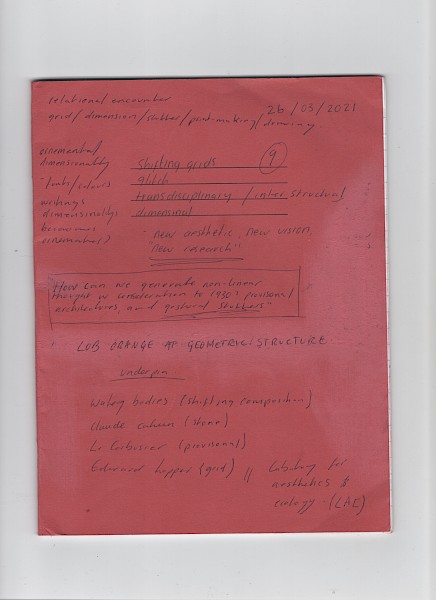 relational encounter
grid/dimension/stutter/print-making/drawing
26/03/2021
cinematic/
dimensionality
shifting grids
9
glitch
"tools/colours
transdisciplinary / inter structural
dimensionality
dimensional
becomes
cinematic?
"new aesthetic, new vision,
"new research"
How can we generate non-linear
thought in consideration to 1930's
architectures, and gestural stutters"
LOB ORANGE AP GEOMETRIC/STRUCTURE
underpin
Watery bodies (shifting composition)
Claude Cahun (stone)
Le Corbusier (provisional)
Edward Hopper (grid) //
Laboratory for
aesthetics &
ecology - (LAE)